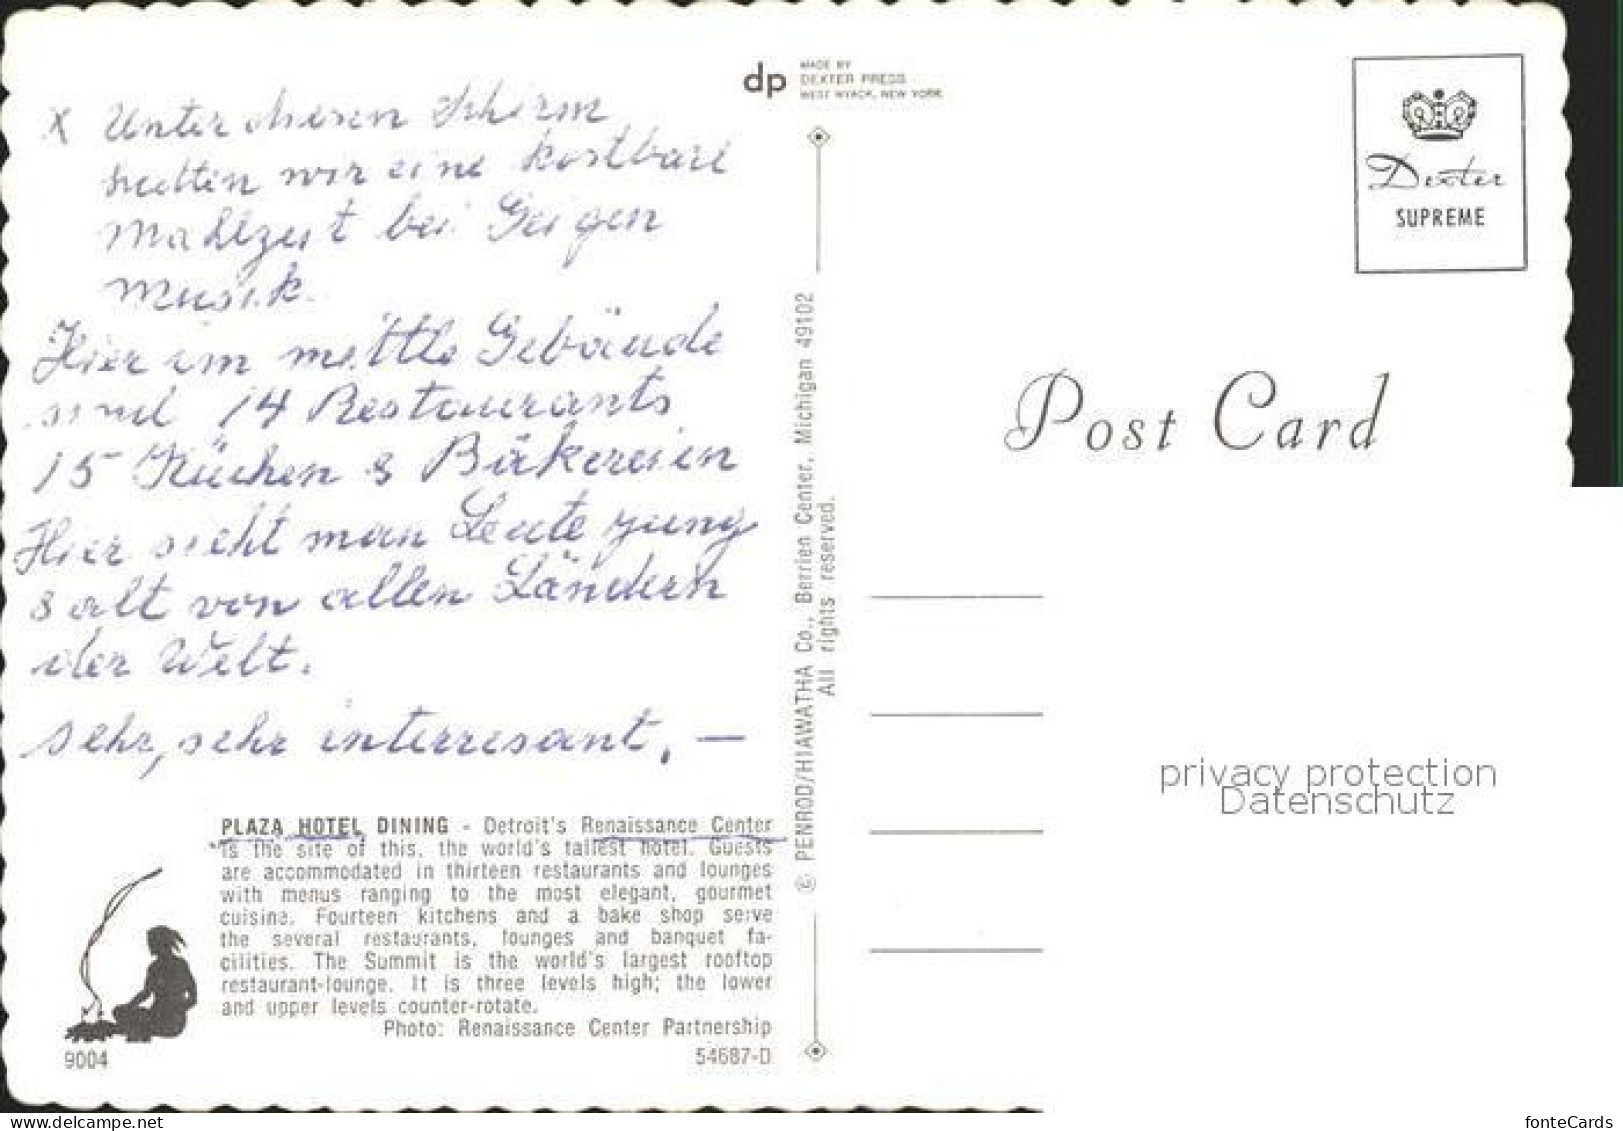 x Unter diesen Schirm
hatten wir eine kostbare
Mahlzeit bei Geigen
musik.
Hier im mittle Gebäude
sind 14 Restaurants
15 Küchen & Bäkereien
Hier sieht man Leute jung
& alt von allen Ländern
der Welt.
sehr, sehr interresant. —
PLAZA HOTEL DINING - Detroit's Renaissance Center
is the site of this, the world's tallest hotel. Guests
are accommodated in thirteen restaurants and lounges
with menus ranging to the most elegant, gourmet
cuisine. Fourteen kitchens and a bake shop serve
the several restaurants, lounges and banquet fa-
cilities. The Summit is the world's largest rooftop
restaurant-lounge. It is three levels high; the lower
and upper levels counter-rotate.
Photo: Renaissance Center Partnership
9004
54687-D
dp
MADE BY
DEXTER PRESS
WEST NYACK, NEW YORK
© PENROD/HIAWATHA Co., Berrien Center, Michigan 49102
All rights reserved.
Dexter
SUPREME
Post Card
privacy protection
Datenschutz
www.delcampe.net
fonteCards